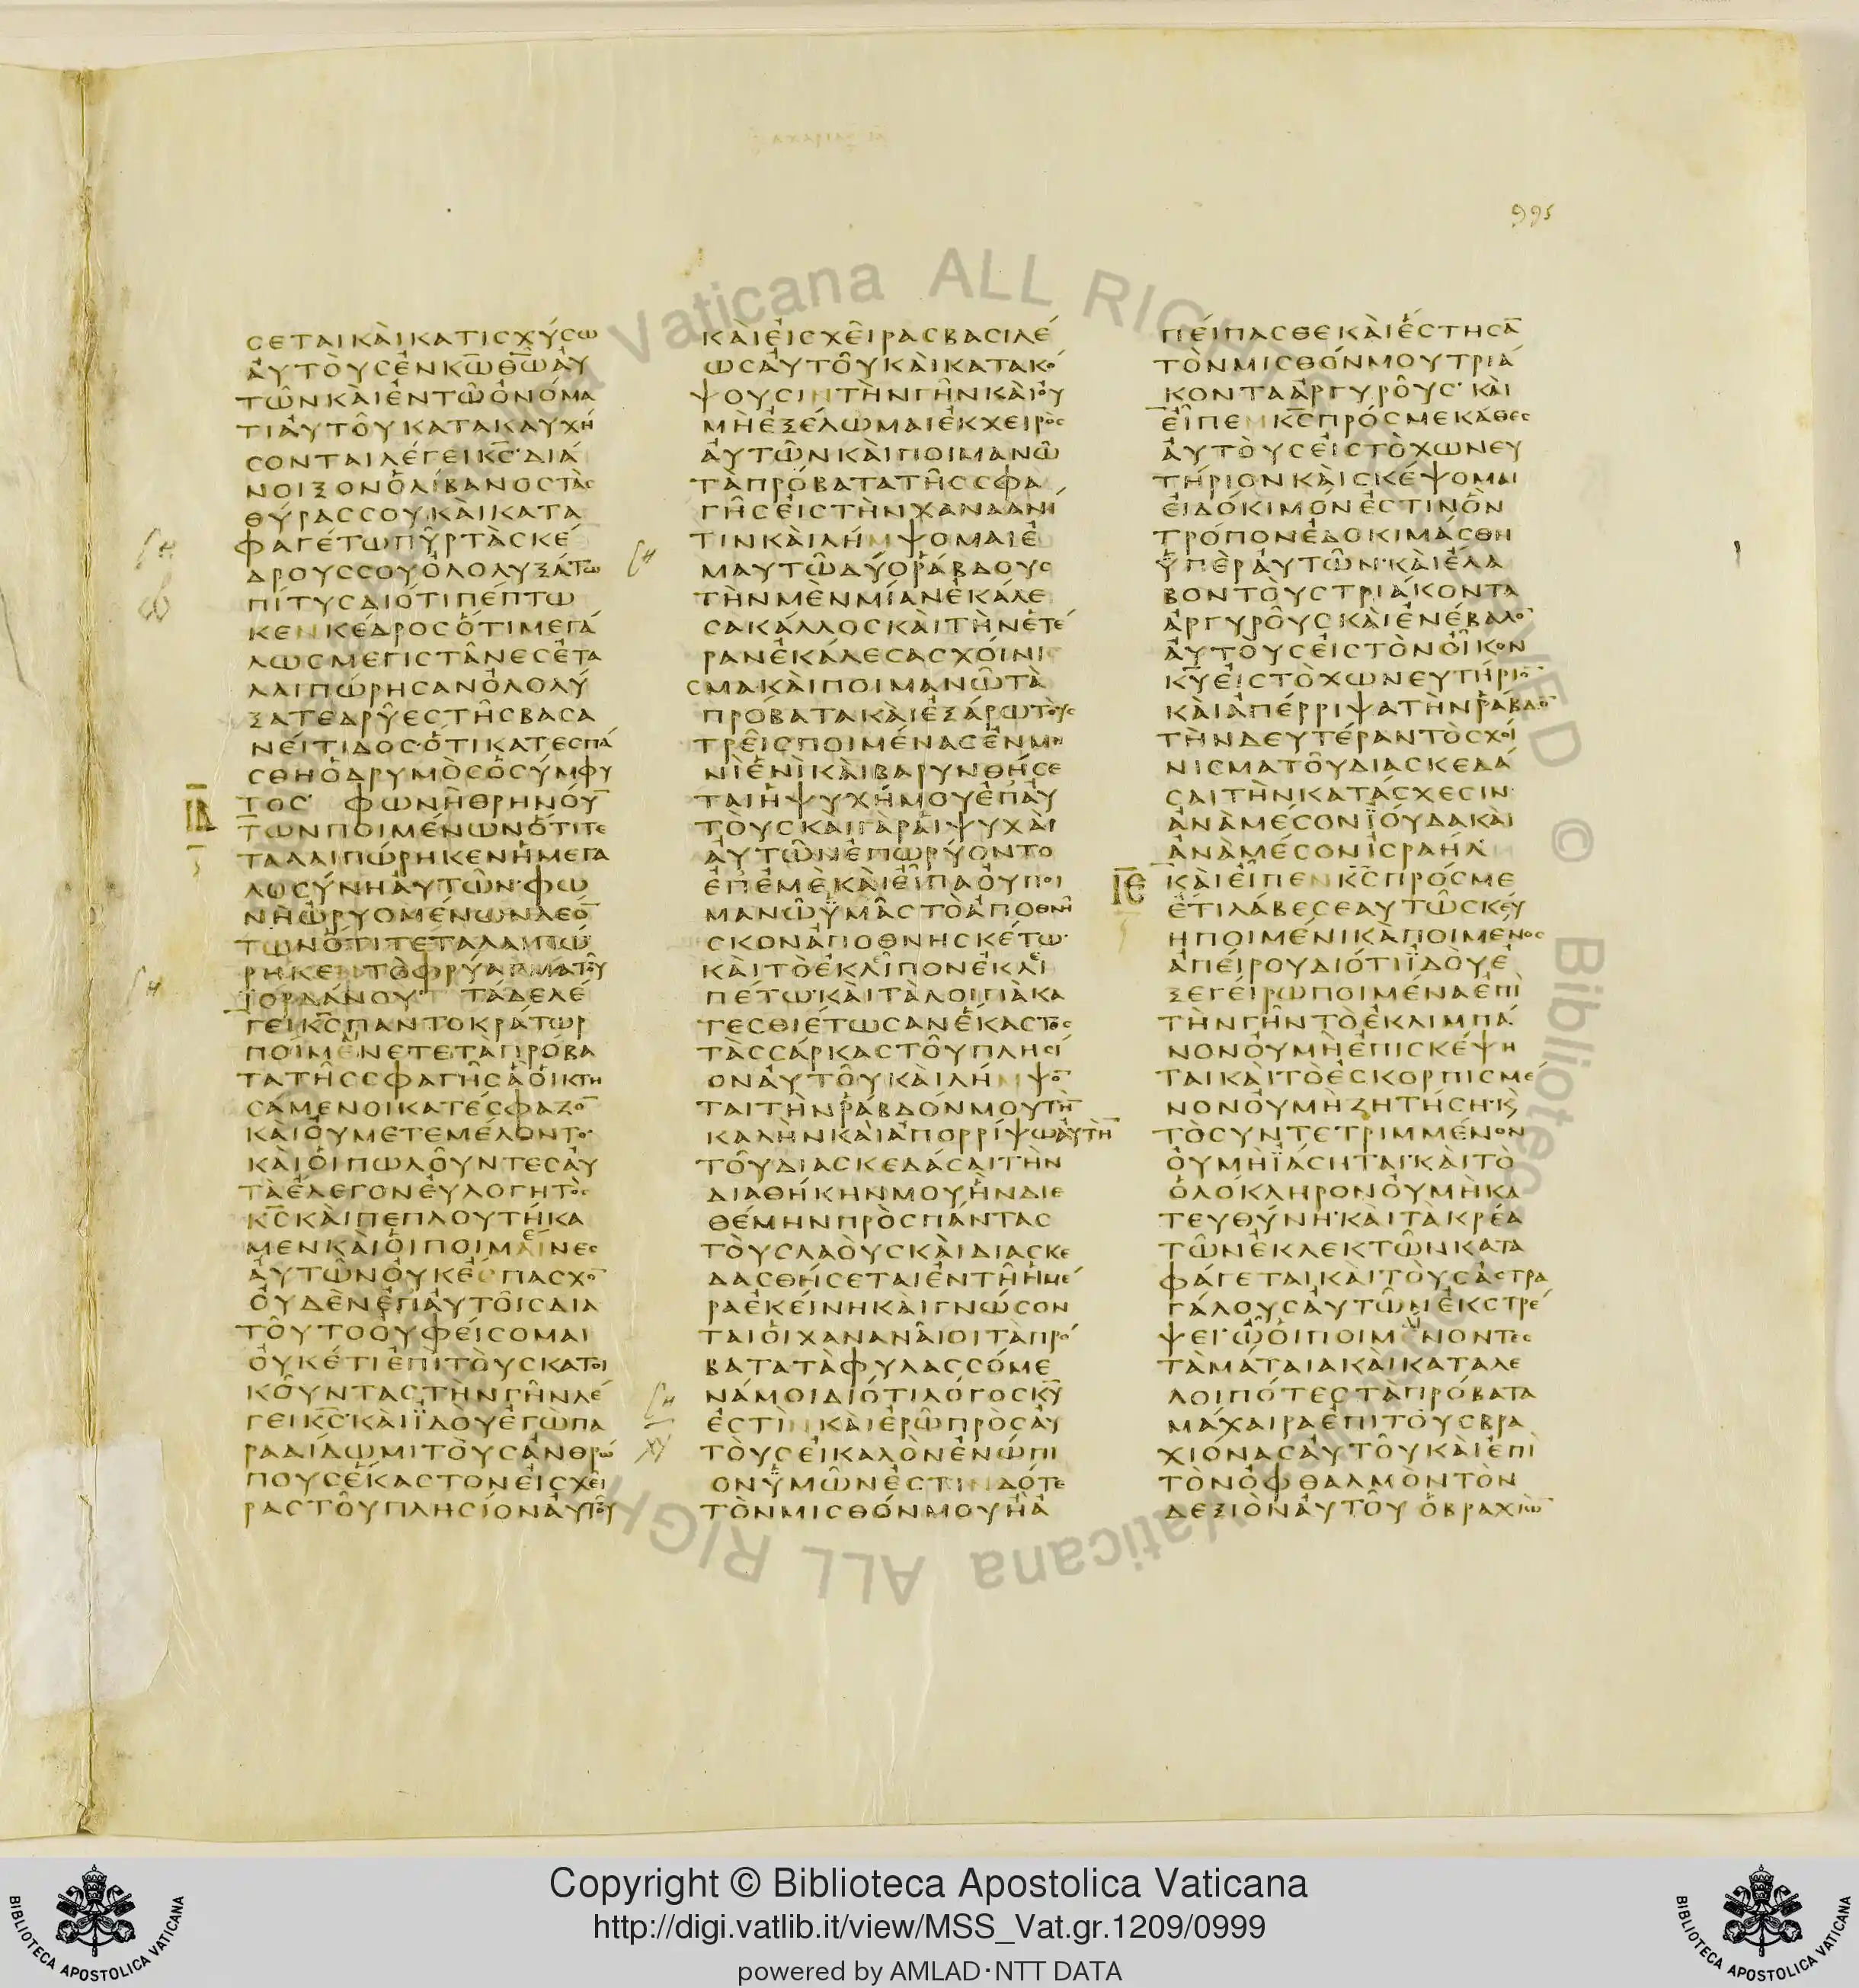 995
ϹΕΤΑΙΚΑΙΚΑΤΙϹΧΥϹΩ
ΑΥΤΟΥϹΕΝΚΩ̅ΘΩ̅ΑΥ
ΤΩΝΚΑΙΕΝΤΩΟΝΟΜΑ
ΤΙΑΥΤΟΥΚΑΤΑΚΑΥΧΗ
ϹΟΝΤΑΙΛΕΓΕΙΚ̅Ϲ̅·ΔΙΑ
ΝΟΙΞΟΝΟΛΙΒΑΝΟϹΤΑϹ
ΘΥΡΑϹϹΟΥΚΑΙΚΑΤΑ
ΦΑΓΕΤΩΠΥΡΤΑϹΚΕ
ΔΡΟΥϹϹΟΥΟΛΟΛΥΞΑΤΩ
ΠΙΤΥϹΔΙΟΤΙΠΕΠΤΩ
ΚΕΝΚΕΔΡΟϹΟΤΙΜΕΓΑ
ΛΩϹΜΕΓΙϹΤΑΝΕϹΕΤΑ
ΛΑΙΠΩΡΗϹΑΝΟΛΟΛΥ
ΞΑΤΕΔΡΥΕϹΤΗϹΒΑϹΑ
ΝΕΙΤΙΔΟϹ·ΟΤΙΚΑΤΕϹΠΑ
ϹΘΗΟΔΡΥΜΟϹΟϹΥΜΦΥ
ΙΔ ΤΟϹ· ΦΩΝΗΘΡΗΝΟΥ̅
ΤΩΝΠΟΙΜΕΝΩΝΟΤΙΤΕ
ΤΑΛΑΙΠΩΡΗΚΕΝΗΜΕΓΑ
ΛΩϹΥΝΗΑΥΤΩΝ·ΦΩ
ΝΗΩΡΥΟΜΕΝΩΝΛΕΟ̅
ΤΩΝΟΤΙΤΕΤΑΛΑΙΠΩ
ΡΗΚΕΝΤΟΦΡΥΑΓΜΑΤΟΥ
ΙΟΡΔΑΝΟΥ· ΤΑΔΕΛΕ
ΓΕΙΚ̅Ϲ̅ΠΑΝΤΟΚΡΑΤΩΡ
ΠΟΙΜΕΝΕΤΕΤΑΠΡΟΒΑ
ΤΑΤΗϹϹΦΑΓΗϹΑΟΙΚΤΗ
ϹΑΜΕΝΟΙΚΑΤΕϹΦΑΖΟ̅
ΚΑΙΟΥΜΕΤΕΜΕΛΟΝΤΟ·
ΚΑΙΟΙΠΩΛΟΥΝΤΕϹΑΥ
ΤΑΕΛΕΓΟΝΕΥΛΟΓΗΤΟϹ
Κ̅Ϲ̅ΚΑΙΠΕΠΛΟΥΤΗΚΑ
ΜΕΝΚΑΙΟΙΠΟΙΜΑΙΝΕϹ
ΑΥΤΩΝΟΥΚΕϹΠΑϹΧΟ̅
ΟΥΔΕΝΕΠΑΥΤΟΙϹΔΙΑ
ΤΟΥΤΟΟΥΦΕΙϹΟΜΑΙ
ΟΥΚΕΤΙΕΠΙΤΟΥϹΚΑΤΟΙ
ΚΟΥΝΤΑϹΤΗΝΓΗΝΛΕ
ΓΕΙΚ̅Ϲ̅·ΚΑΙΙΔΟΥΕΓΩΠΑ
ΡΑΔΙΔΩΜΙΤΟΥϹΑΝΘΡΩ
ΠΟΥϹΕΚΑϹΤΟΝΕΙϹΧΕΙ
ΡΑϹΤΟΥΠΛΗϹΙΟΝΑΥΤΟΥ
ΚΑΙΕΙϹΧΕΙΡΑϹΒΑϹΙΛΕ
ΩϹΑΥΤΟΥΚΑΙΚΑΤΑΚΟ
ΨΟΥϹΙΝΤΗΝΓΗΝΚΑΙΟΥ
ΜΗΕΞΕΛΩΜΑΙΕΚΧΕΙΡΟϹ
ΑΥΤΩΝΚΑΙΠΟΙΜΑΝΩ
ΤΑΠΡΟΒΑΤΑΤΗϹϹΦΑ
ΓΗϹΕΙϹΤΗΝΧΑΝΑΑΝΙ
ΤΙΝΚΑΙΛΗΜΨΟΜΑΙΕ
ΜΑΥΤΩΔΥΟΡΑΒΔΟΥϹ
ΤΗΝΜΕΝΜΙΑΝΕΚΑΛΕ
ϹΑΚΑΛΛΟϹΚΑΙΤΗΝΕΤΕ
ΡΑΝΕΚΑΛΕϹΑϹΧΟΙΝΙ
ϹΜΑΚΑΙΠΟΙΜΑΝΩΤΑ
ΠΡΟΒΑΤΑΚΑΙΕΞΑΡΩΤΟΥϹ
ΤΡΕΙϹΠΟΙΜΕΝΑϹΕΝΜΗ
ΝΙΕΝΙΚΑΙΒΑΡΥΝΘΗϹΕ
ΤΑΙΗΨΥΧΗΜΟΥΕΠΑΥ
ΤΟΥϹΚΑΙΓΑΡΑΙΨΥΧΑΙ
ΑΥΤΩΝΕΠΩΡΥΟΝΤΟ
ΕΠΕΜΕΚΑΙΕΙΠΑΟΥΠΟΙ
ΜΑΝΩΥΜΑϹΤΟΑΠΟΘΝΗ
ϹΚΟΝΑΠΟΘΝΗϹΚΕΤΩ·
ΚΑΙΤΟΕΚΛΙΠΟΝΕΚΛΙ
ΠΕΤΩ·ΚΑΙΤΑΛΟΙΠΑΚΑ
ΤΕϹΘΙΕΤΩϹΑΝΕΚΑϹΤΟϹ
ΤΑϹϹΑΡΚΑϹΤΟΥΠΛΗϹΙ
ΟΝΑΥΤΟΥΚΑΙΛΗΜΨΟ̅
ΤΑΙΤΗΝΡΑΒΔΟΝΜΟΥΤΗ̅
ΚΑΛΗΝΚΑΙΑΠΟΡΡΙΨΩΑΥΤΗ̅
ΤΟΥΔΙΑϹΚΕΔΑϹΑΙΤΗΝ
ΔΙΑΘΗΚΗΝΜΟΥΗΝΔΙΕ
ΘΕΜΗΝΠΡΟϹΠΑΝΤΑϹ
ΤΟΥϹΛΑΟΥϹΚΑΙΔΙΑϹΚΕ
ΔΑϹΘΗϹΕΤΑΙΕΝΤΗΗΜΕ
ΡΑΕΚΕΙΝΗΚΑΙΓΝΩϹΟΝ
ΤΑΙΟΙΧΑΝΑΝΑΙΟΙΤΑΠΡΟ
ΒΑΤΑΤΑΦΥΛΑϹϹΟΜΕ
ΝΑΜΟΙΔΙΟΤΙΛΟΓΟϹΚ̅Υ̅
ΕϹΤΙΝΚΑΙΕΡΩΠΡΟϹΑΥ
ΤΟΥϹΕΙΚΑΛΟΝΕΝΩΠΙ
ΟΝΥΜΩΝΕϹΤΙΝΔΟΤΕ
ΤΟΝΜΙϹΘΟΝΜΟΥΗΑ
ΠΕΙΠΑϹΘΕΚΑΙΕϹΤΗϹΑ̅
ΤΟΝΜΙϹΘΟΝΜΟΥΤΡΙΑ
ΚΟΝΤΑΑΡΓΥΡΟΥϹ· ΚΑΙ
ΕΙΠΕΝΚ̅Ϲ̅ΠΡΟϹΜΕΚΑΘΕϹ
ΑΥΤΟΥϹΕΙϹΤΟΧΩΝΕΥ
ΤΗΡΙΟΝΚΑΙϹΚΕΨΟΜΑΙ
ΕΙΔΟΚΙΜΟΝΕϹΤΙΝΟΝ
ΤΡΟΠΟΝΕΔΟΚΙΜΑϹΘΗ
ΥΠΕΡΑΥΤΩΝ·ΚΑΙΕΛΑ
ΒΟΝΤΟΥϹΤΡΙΑΚΟΝΤΑ
ΑΡΓΥΡΟΥϹΚΑΙΕΝΕΒΑΛΟ̅
ΑΥΤΟΥϹΕΙϹΤΟΝΟΙΚΟΝ
Κ̅Υ̅ΕΙϹΤΟΧΩΝΕΥΤΗΡΙΟ̅
ΚΑΙΑΠΕΡΡΙΨΑΤΗΝΡΑΒΔΟ̅
ΤΗΝΔΕΥΤΕΡΑΝΤΟϹΧΟΙ
ΝΙϹΜΑΤΟΥΔΙΑϹΚΕΔΑ
ϹΑΙΤΗΝΚΑΤΑϹΧΕϹΙΝ
ΑΝΑΜΕϹΟΝΙΟΥΔΑΚΑΙ
ΑΝΑΜΕϹΟΝΙϹΡΑΗΛ
ΙΕ ΚΑΙΕΙΠΕΝΚ̅Ϲ̅ΠΡΟϹΜΕ
ΕΤΙΛΑΒΕϹΕΑΥΤΩϹΚΕΥ
ΗΠΟΙΜΕΝΙΚΑΠΟΙΜΕΝΟϹ
ΑΠΕΙΡΟΥΔΙΟΤΙΙΔΟΥΕ
ΞΕΓΕΙΡΩΠΟΙΜΕΝΑΕΠΙ
ΤΗΝΓΗΝΤΟΕΚΛΙΜΠΑ
ΝΟΝΟΥΜΗΕΠΙϹΚΕΨΗ
ΤΑΙΚΑΙΤΟΕϹΚΟΡΠΙϹΜΕ
ΝΟΝΟΥΜΗΖΗΤΗϹΗ·Κ
ΤΟϹΥΝΤΕΤΡΙΜΜΕΝΟΝ
ΟΥΜΗΙΑϹΗΤΑΙ·ΚΑΙΤΟ
ΟΛΟΚΛΗΡΟΝΟΥΜΗΚΑ
ΤΕΥΘΥΝΗ·ΚΑΙΤΑΚΡΕΑ
ΤΩΝΕΚΛΕΚΤΩΝΚΑΤΑ
ΦΑΓΕΤΑΙΚΑΙΤΟΥϹΑϹΤΡΑ
ΓΑΛΟΥϹΑΥΤΩΝΕΚϹΤΡΕ
ΨΕΙ·ΩΟΙΠΟΙΜΕΝΟΝΤΕϹ
ΤΑΜΑΤΑΙΑΚΑΙΚΑΤΑΛΕ
ΛΟΙΠΟΤΕϹΤΑΠΡΟΒΑΤΑ
ΜΑΧΑΙΡΑΕΠΙΤΟΥϹΒΡΑ
ΧΙΟΝΑϹΑΥΤΟΥΚΑΙΕΠΙ
ΤΟΝΟΦΘΑΛΜΟΝΤΟΝ
ΔΕΞΙΟΝΑΥΤΟΥ ΟΒΡΑΧΙΩ̅
Vaticana ALL RIGHTS RESERVED © Biblioteca
Copyright © Biblioteca Apostolica Vaticana
http://digi.vatlib.it/view/MSS_Vat.gr.1209/0999
powered by AMLAD·NTT DATA
BIBLIOTECA APOSTOLICA VATICANA
BIBLIOTECA APOSTOLICA VATICANA